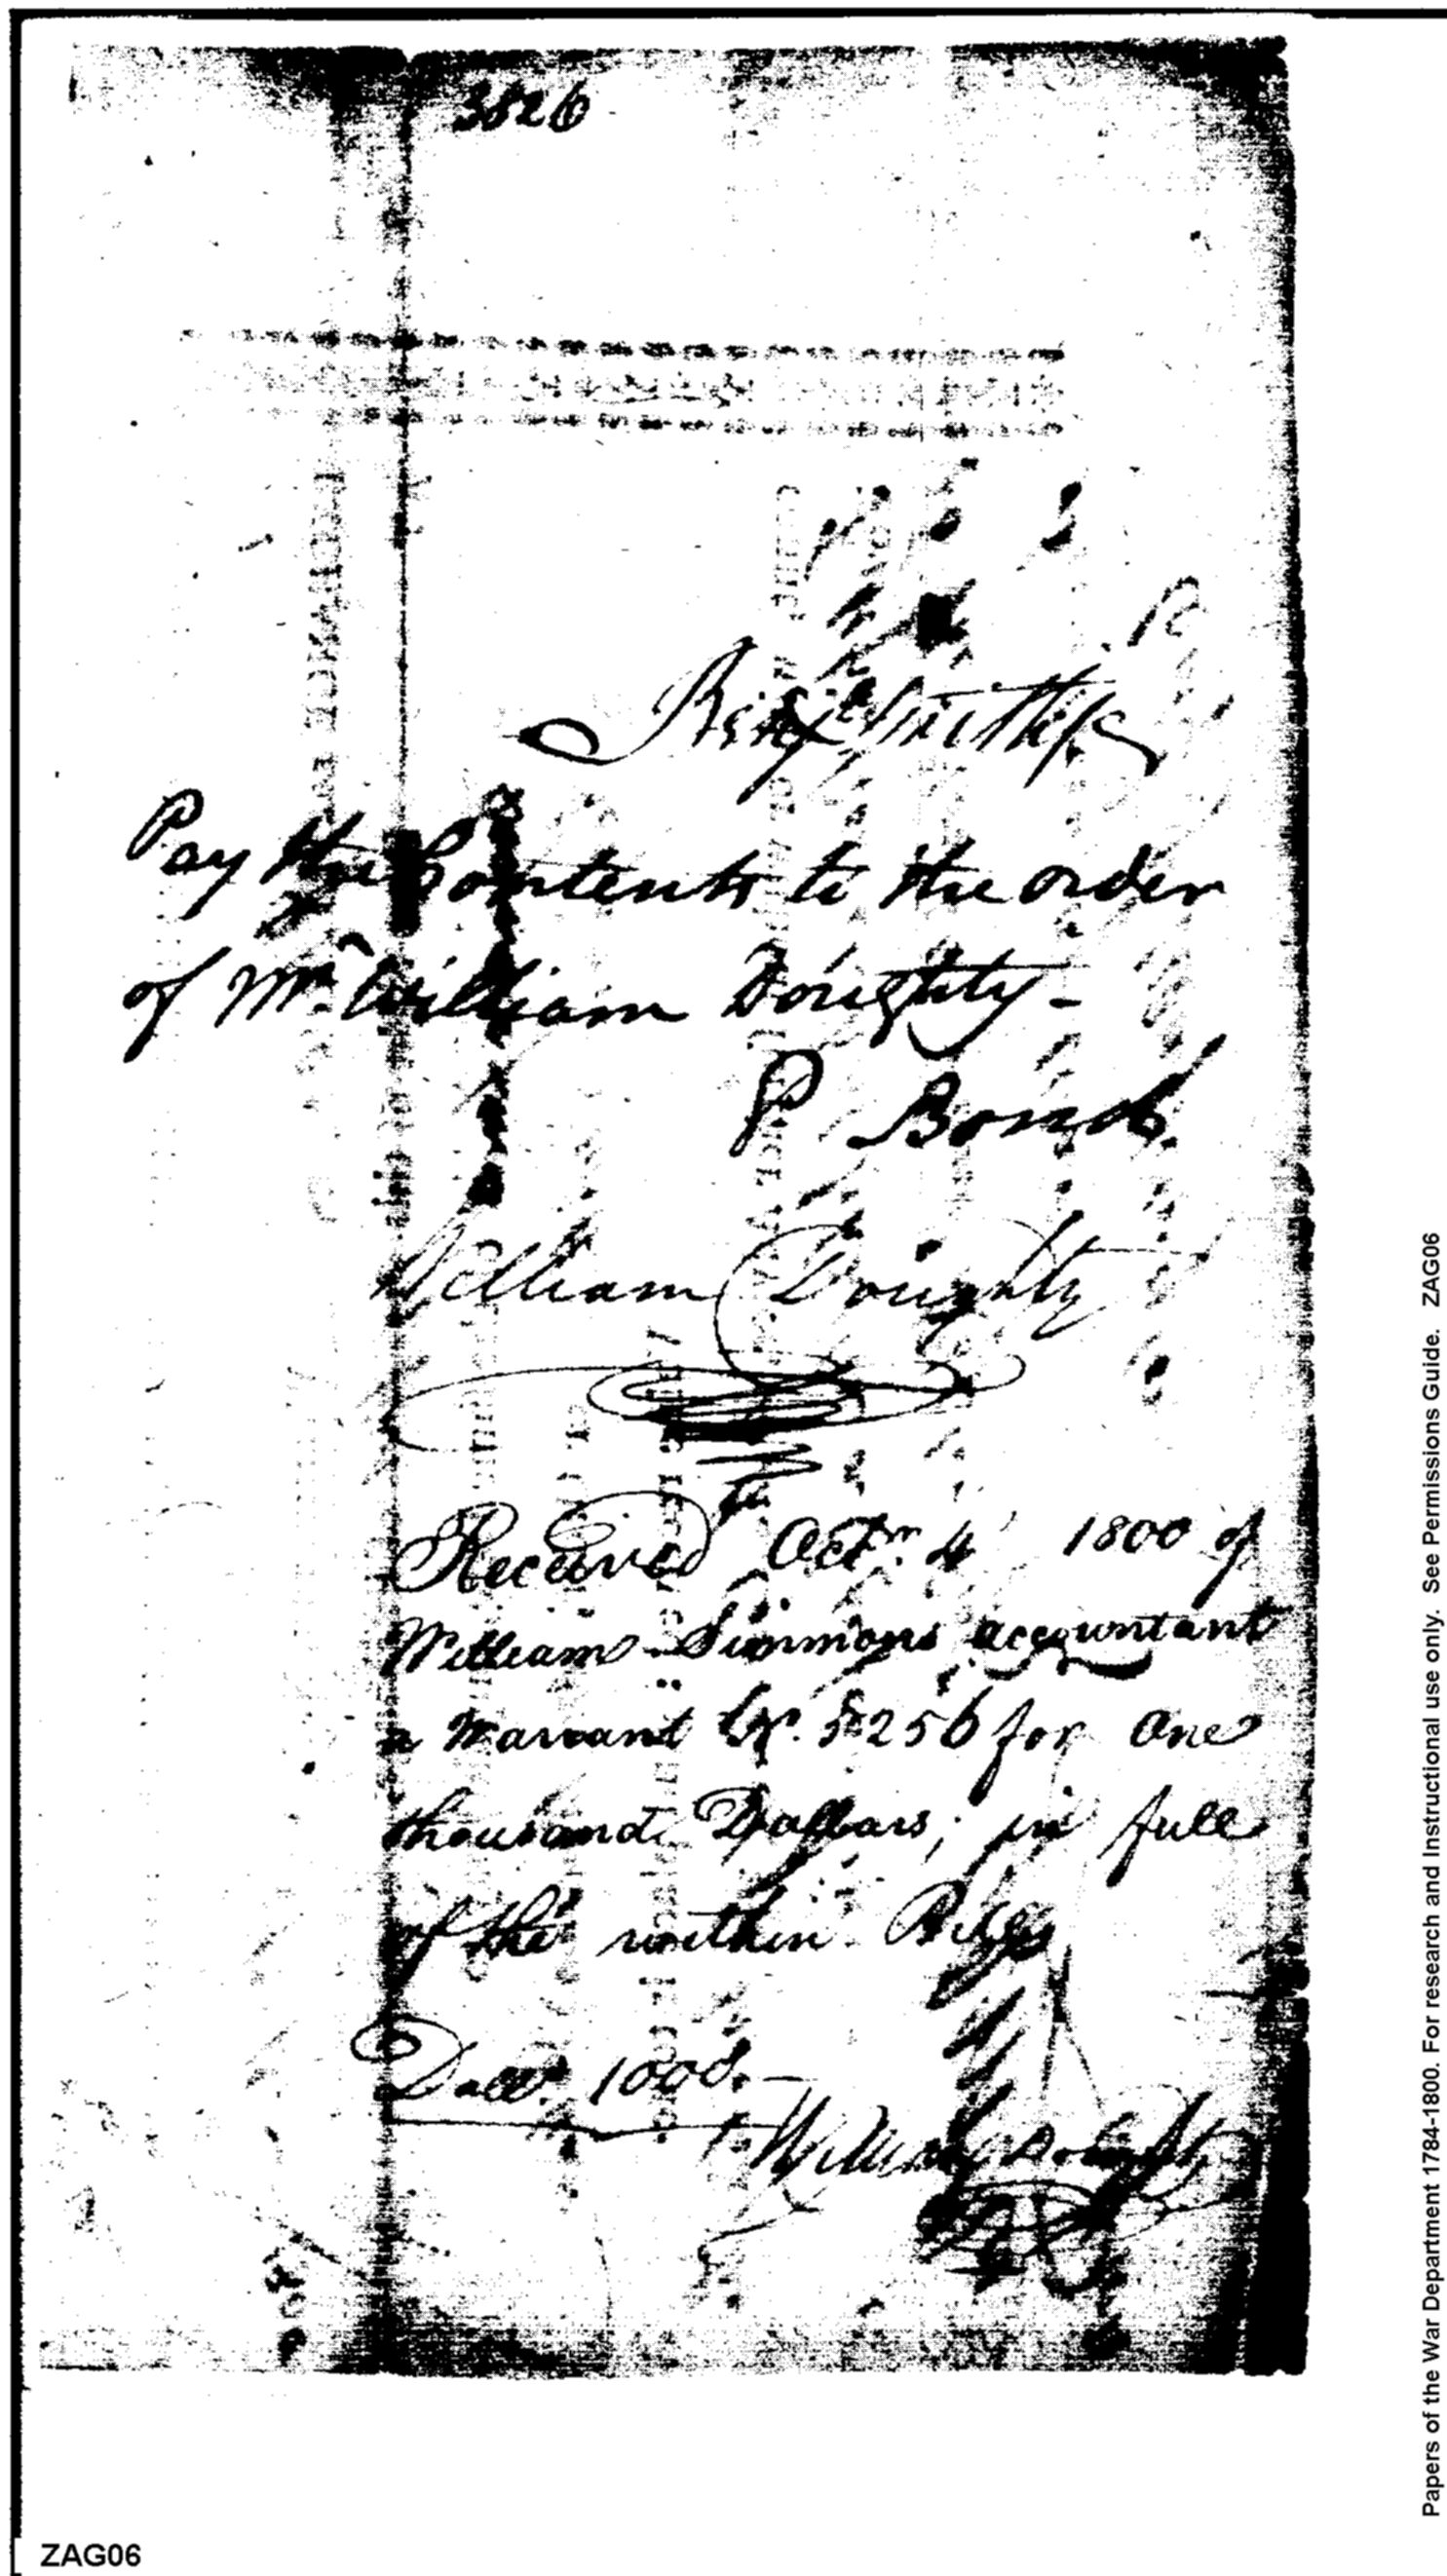 3826
Benj Smith
Pay the Contents to the order
of Mr. William Doughty -
P Bond.
William Doughty
Received Octr. 4th 1800 of
William Simmons accountant
a Warrant No. 5256 for One
thousand Dollars, in full
of the within Bill
Dollrs. 1000. -
William Doughty
Papers of the War Department 1784-1800. For research and Instructional use only. See Permissions Guide. ZAG06
ZAG06